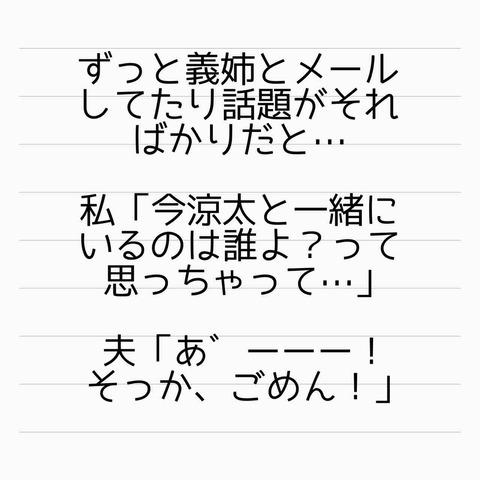 ずっと義姉とメール
してたり話題がそれ
ばかりだと…
私「今涼太と一緒に
いるのは誰よ？って
思っちゃって…」
夫「あ゛ーーー！
そっか、ごめん！」